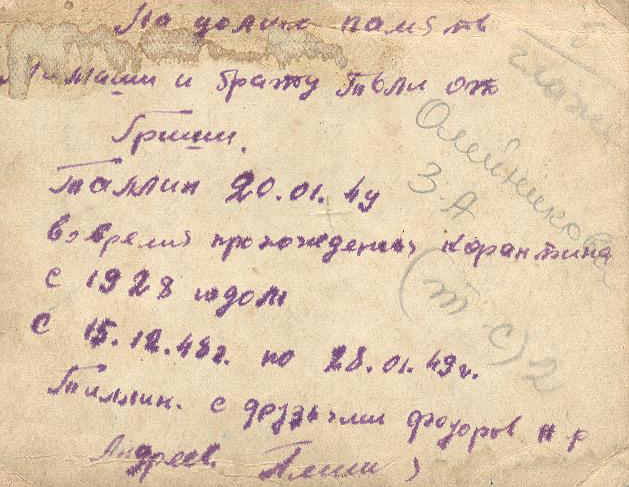 На долгую память
Мамаши и брату Толи от
Гриши.
Таллин 20.01.49
во время прохождения корантина
с 1928 годом
с 15.12.48г. по 28.01.49г.
Таллин. с друзьями
Андреев.
Олейникова
З А
(т с) 2